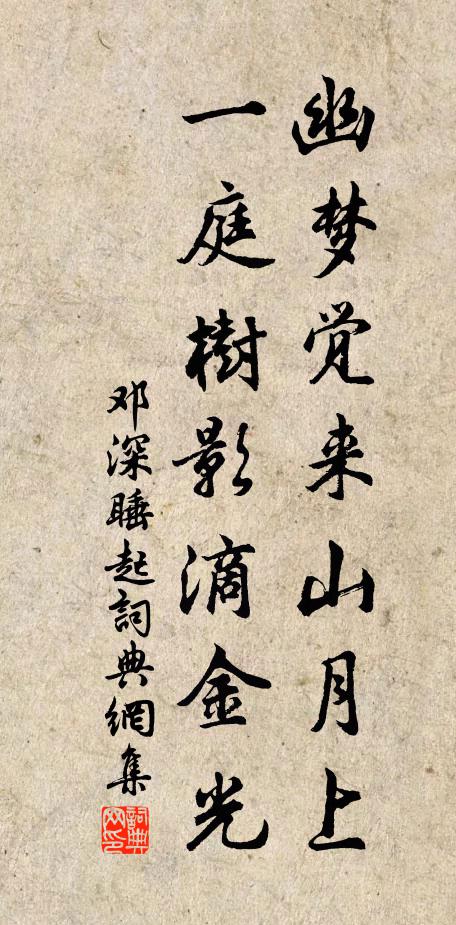 幽梦觉来山月上
一庭樹影滴金光
邓深睡起詞典網集
詞典
网印